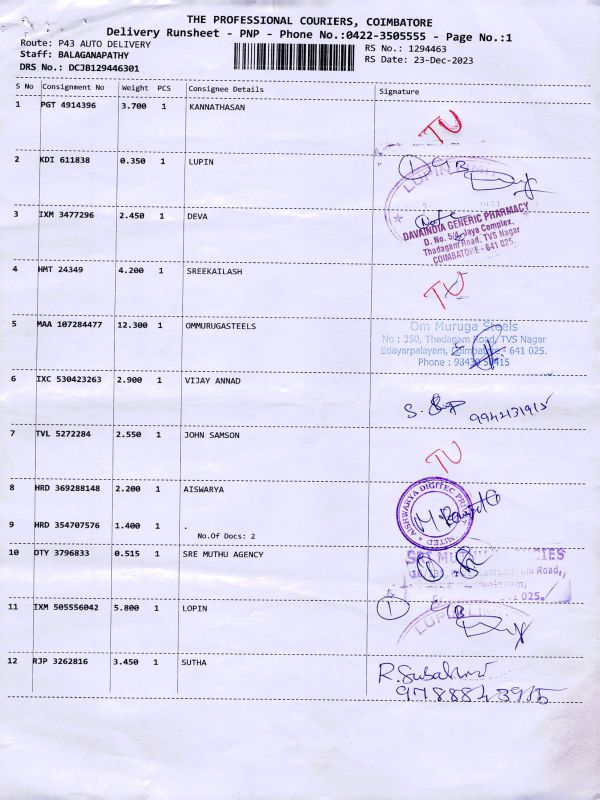 THE PROFESSIONAL COURIERS, COIMBATORE
Delivery Runsheet - PNP - Phone No.:0422-3505555 - Page No.:1
Route: P43 AUTO DELIVERY
Staff: BALAGANAPATHY
DRS No.: DCJB129446301
RS No.: 1294463
RS Date: 23-Dec-2023
S No Consignment No Weight PCS Consignee Details Signature
1 PGT 4914396 3.700 1 KANNATHASAN
TU
2 KDI 611838 0.350 1 LUPIN
LUPIN
3 IXM 3477296 2.450 1 DEVA
DAVAINDIA GENERIC PHARMACY
D. No. 5/4, Jaya Complex,
Thadagam Road, TVS Nagar
COIMBATORE - 641 025.
4 HMT 24349 4.200 1 SREEKAILASH
TU
5 MAA 107284477 12.300 1 OMMURUGASTEELS
Om Muruga Steels
No : 350, Thadagam Road, TVS Nagar
Edayarpalayam, Coimbatore - 641 025.
Phone :
6 IXC 530423263 2.900 1 VIJAY ANNAD
S.
9942131915
7 TVL 5272284 2.550 1 JOHN SAMSON
TU
8 HRD 369288148 2.200 1 AISWARYA
AISHWARYA DIGITEC
9 HRD 354707576 1.400 1 .
No.Of Docs: 2
10 OTY 3796833 0.515 1 SRE MUTHU AGENCY
Road,
025.
11 IXM 505556042 5.800 1 LOPIN
1
LUPIN
12 RJP 3262816 3.450 1 SUTHA